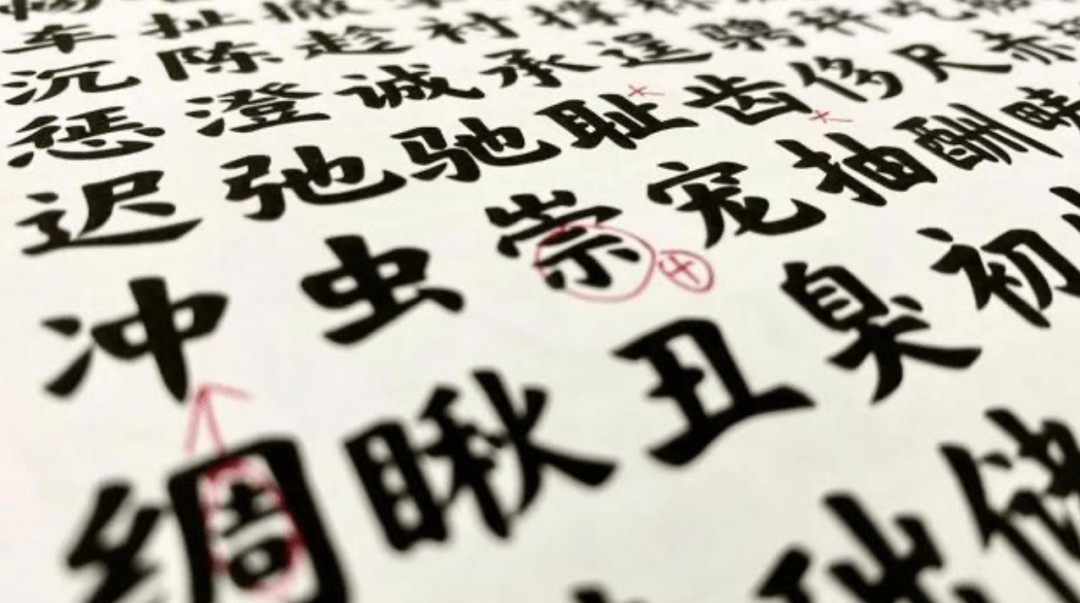 车 扯
沉 陈 趁 衬 撑 称
惩 澄 诚 承 逞 骋 秤 吃
迟 弛 驰 耻 齿 侈 尺 赤
冲 虫 崇 宠 抽 酬 畴
绸 瞅 丑 臭 初
础 储